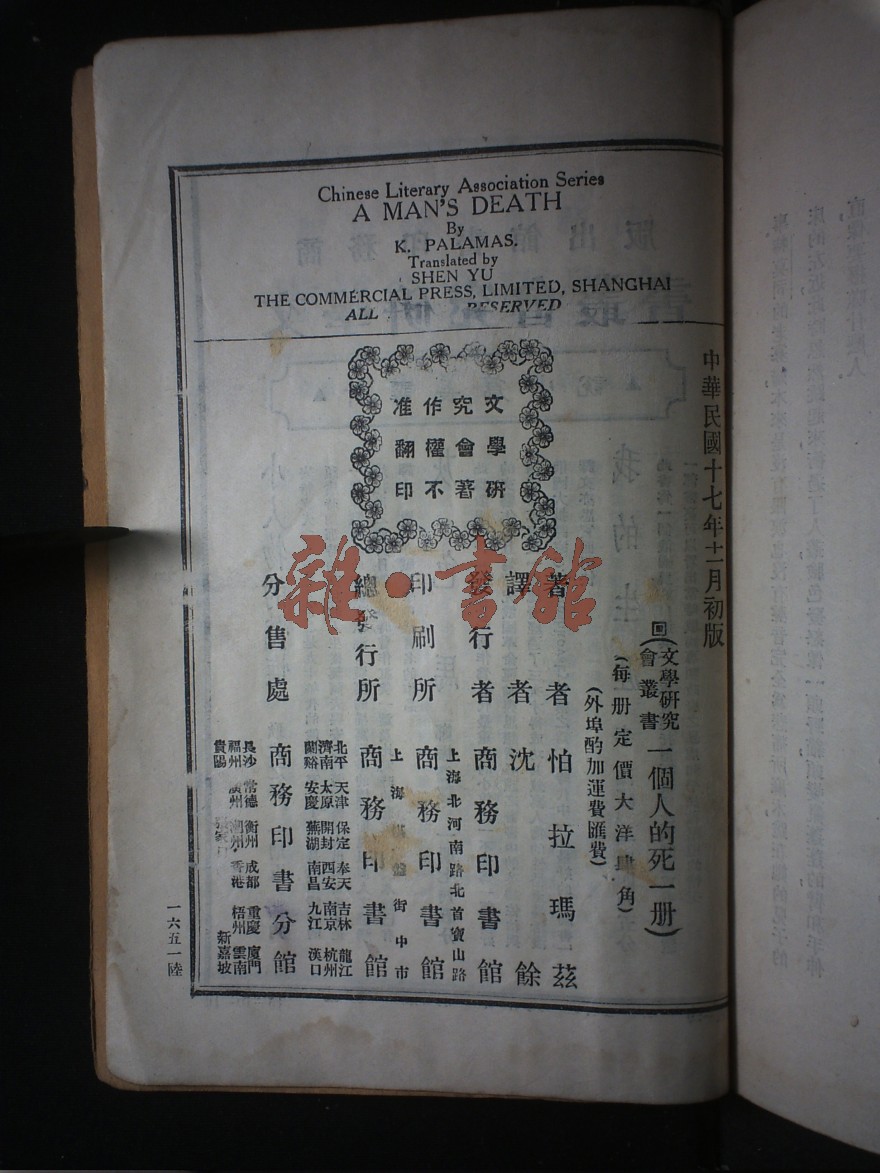 Chinese Literary Association Series
A MAN'S DEATH
By
K. PALAMAS.
Translated by
SHEN YU
THE COMMERCIAL PRESS, LIMITED, SHANGHAI
ALL RESERVED
文學研
究會著
作權不
准翻印
中華民國十七年十一月初版
(文學研究會叢書一個人的死一册)
(每一册定價大洋肆角)
(外埠酌加運費匯費)
著者 怕拉瑪茲
譯者 沈餘
發行者 商務印書館
上海北河南路北首寶山路
印刷所 商務印書館
上海 街中市
總發行所 商務印書館
北平 天津 保定 奉天 吉林 龍江
濟南 太原 開封 西安 南京 杭州
蘭谿 安慶 蕪湖 南昌 九江 漢口
分售處 商務印書分館
長沙 常德 衡州 成都 重慶 廈門
福州 廣州 潮州 香港 梧州 雲南
貴陽 新嘉坡
一六五一陸
雜·書館